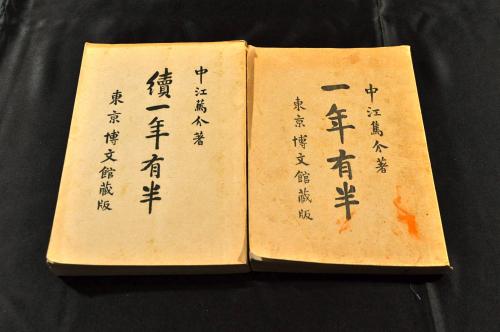 中江篤介著
一年有半
東京博文館蔵版
中江篤介著
續一年有半
東京博文館蔵版